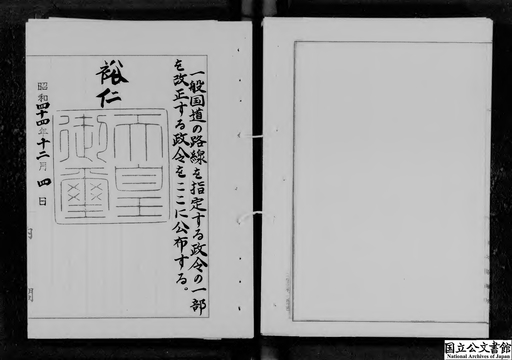 一般国道の路線を指定する政令の一部
を改正する政令をここに公布する。
裕仁
天皇
御璽
昭和四十四年十二月四日
国立公文書館
National Archives of Japan